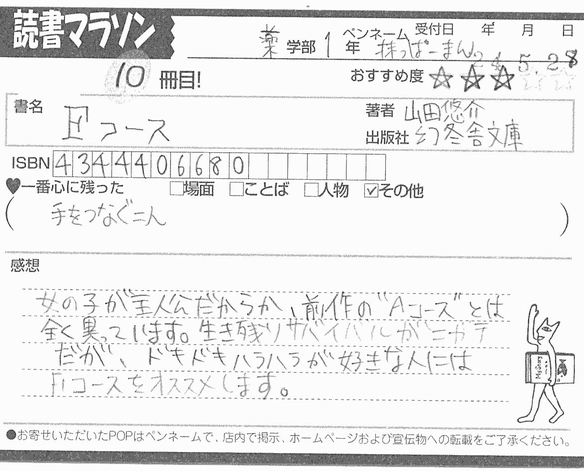 読書マラソン
受付日 年 月 日
薬 学部 1 年 ペンネーム 抹っぱーまん
24.5.28
10 冊目!
おすすめ度 ☆☆☆☆☆
書名 Fコース
著者 山田悠介
出版社 幻冬舎文庫
ISBN 4344406680
♥一番心に残った □場面 □ことば □人物 ☑その他
(手をつなぐニん)
感想
女の子が主人公だからか、前作の"Aコース"とは
全く異っています。生き残りサバイバルがニガテ
だが、ドキドキハラハラが好きな人には
Fコースをオススメします。
●お寄せいただいたPOPはペンネームで、店内で掲示、ホームページおよび宣伝物への転載をご了承ください。